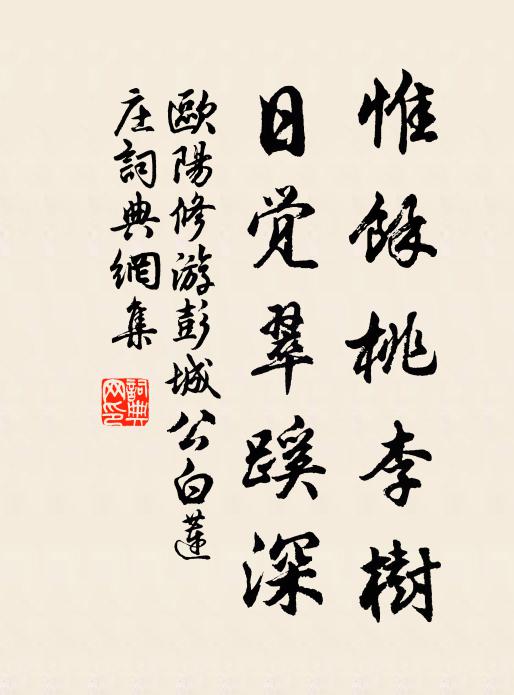 惟餘桃李樹
日觉翠蹊深
歐陽修游彭城公白蓮
庄詞典網集
詞典网印